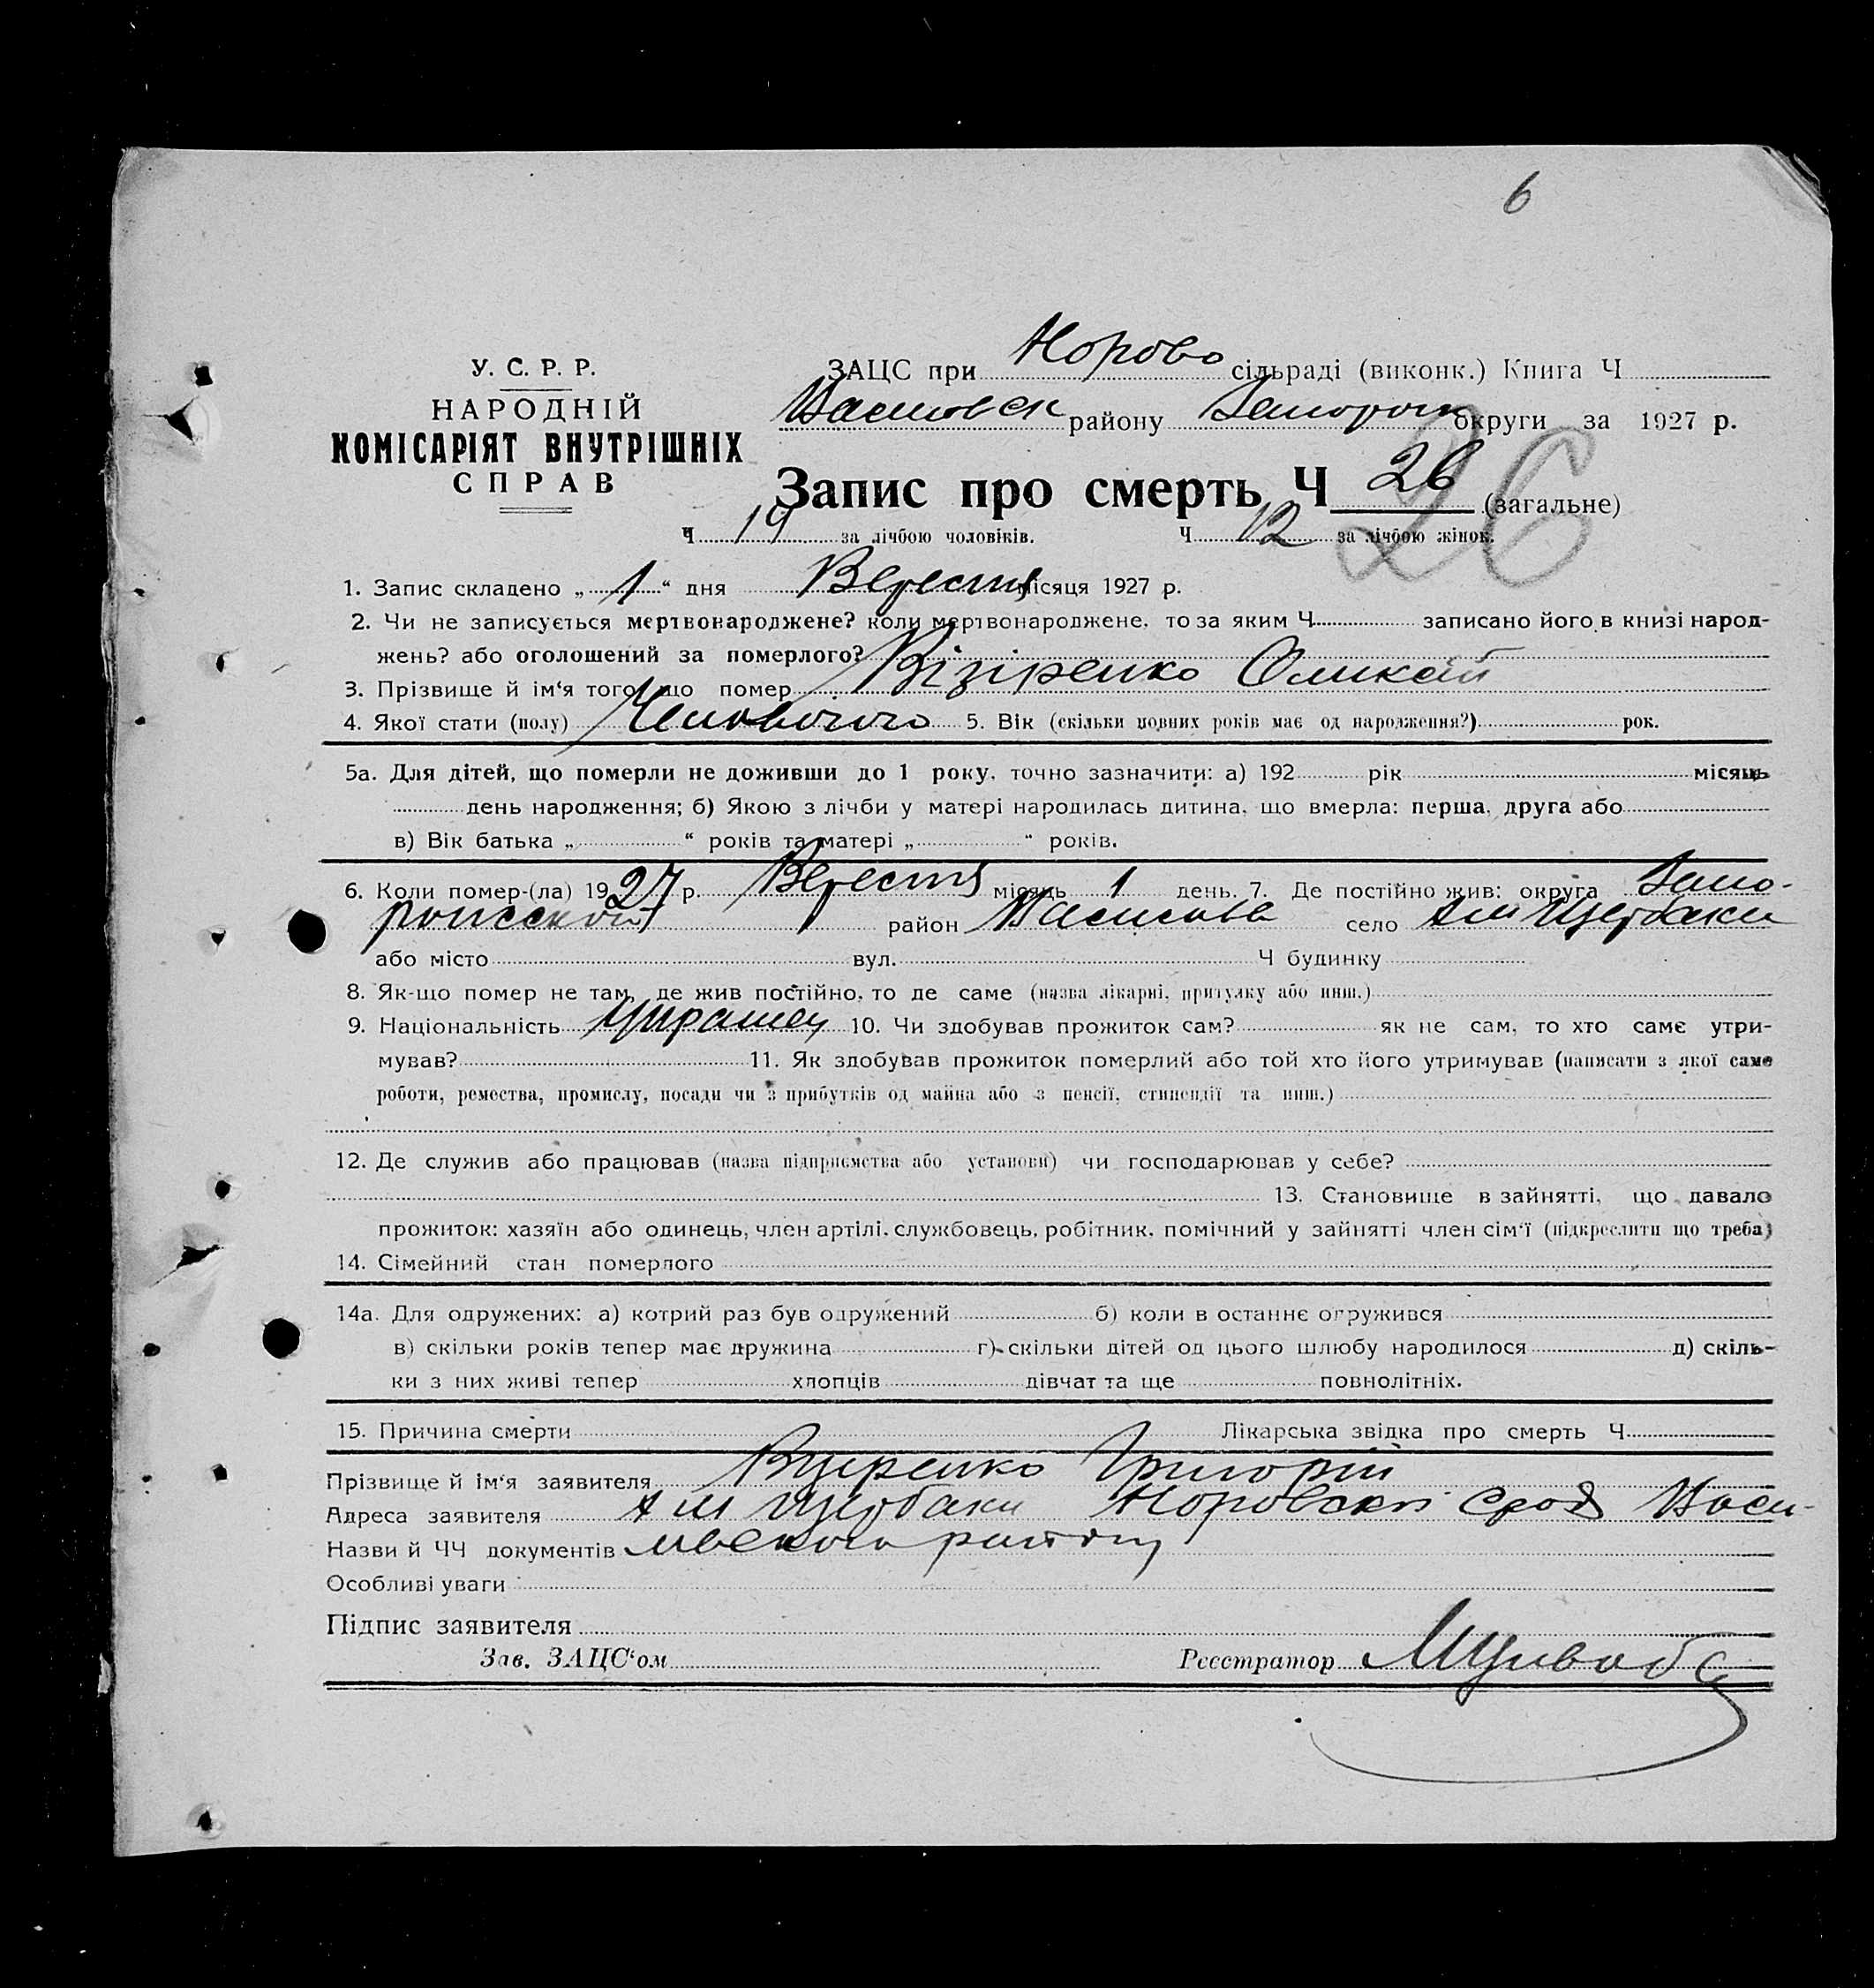 6
У. С. Р. Р.
НАРОДНІЙ
КОМІСАРІЯТ ВНУТРІШНІХ
СПРАВ
ЗАЦС при Норово сільраді (виконк.) Книга Ч
району округи за 1927 р.
Запис про смерть Ч 26 (загальне)
26
Ч 14 за лічбою чоловіків. Ч 12 за лічбою жінок.
1. Запис складено „ 1 “ дня Вересня місяця 1927 р.
2. Чи не записується мертвонароджене? коли мертвонароджене, то за яким Ч записано його в книзі народ-
жень? або оголошений за померлого?
3. Прізвище й ім‘я того, що помер Візіренко
4. Якої стати (полу) 5. Вік (скільки повних років має од народження?) рок.
5а. Для дітей, що померли не доживши до 1 року, точно зазначити: а) 192 рік місяць
день народження; б) Якою з лічби у матері народилась дитина, що вмерла: перша, друга або
в) Вік батька „ “ років та матері „ “ років.
6. Коли помер-(ла) 1927 р. Вересня місяць 1 день. 7. Де постійно жив: округа Запо-
район село Щербаки
або місто вул. Ч будинку
8. Як-що помер не там, де жив постійно, то де саме (назва лікарні, притулку або инш.)
9. Національність 10. Чи здобував прожиток сам? як не сам, то хто саме утри-
мував? 11. Як здобував прожиток померлий або той хто його утримував (написати з якої саме
роботи, ремества, промислу, посади чи з прибутків од майна або з пенсії, стипендії та инш.)
12. Де служив або працював (назва підприємства або установи) чи господарював у себе?
13. Становище в зайнятті, що давало
прожиток: хазяїн або одинець, член артілі, службовець, робітник, помічний у зайнятті член сім‘ї (підкреслити що треба)
14. Сімейний стан померлого
14а. Для одружених: а) котрий раз був одружений б) коли в останнє огружився
в) скільки років тепер має дружина г) скільки дітей од цього шлюбу народилося д) скіль-
ки з них живі тепер хлопців дівчат та ще повнолітніх.
15. Причина смерти Лікарська звідка про смерть Ч
Прізвище й ім‘я заявителя Григорій
Адреса заявителя Щербаки Васи-
Назви й ЧЧ документів району
Особливі уваги
Підпис заявителя
Зав. ЗАЦС‘ом Реєстратор